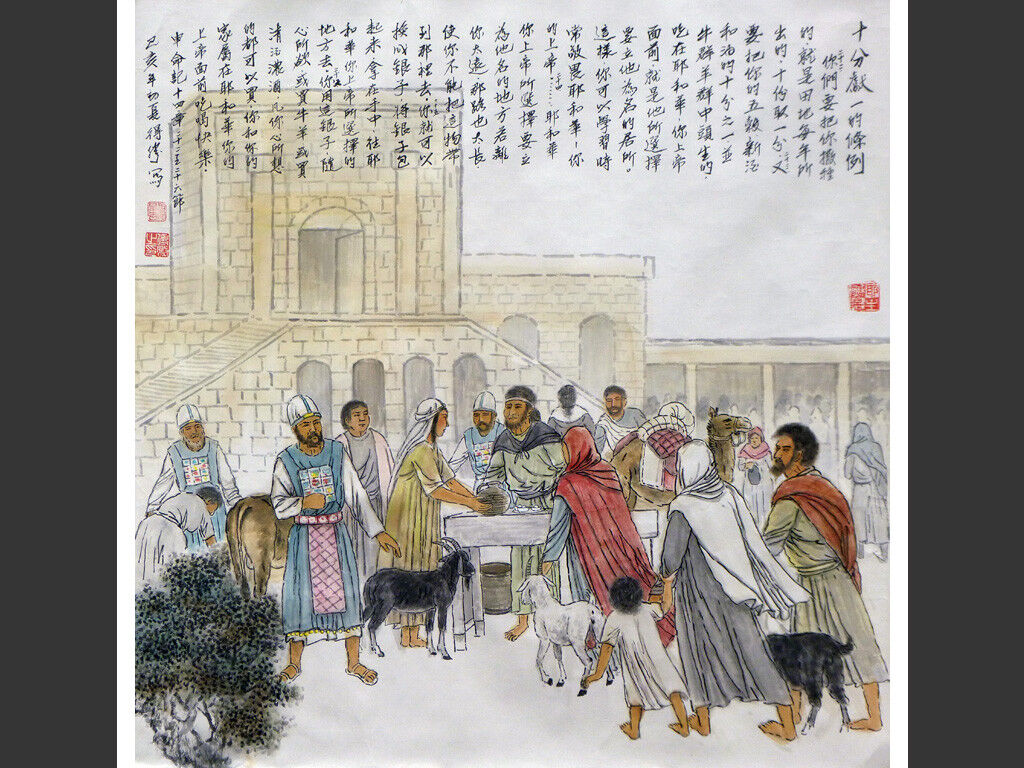 十分獻一的條例
你們要把你撒種
的就是田地每年所
出的,十份取一分。又
要把你的五穀新酒
和油的十分之一並
牛群羊群中頭生的,
吃在耶和華你上帝
面前就是他所選擇
要立他為名的居所。
這樣你可以學習時
常敬畏耶和華–你
的上帝……耶和華
你上帝所選擇要立
為他名的地方若離
你太遠那路也太長
使你不能把這物帶
到那裡去,你就可以
換成銀子將銀子包
起來拿在手中,往耶
和華你上帝所選擇的
地方去。你用這銀子隨
心所欲或買牛羊或買
清酒濃酒,凡你心所想
的都可以買。你和你的
家屬在耶和華你的
上帝面前吃喝快樂.
申命記十四章二十二至二十六節
己亥年初 得偉 寫